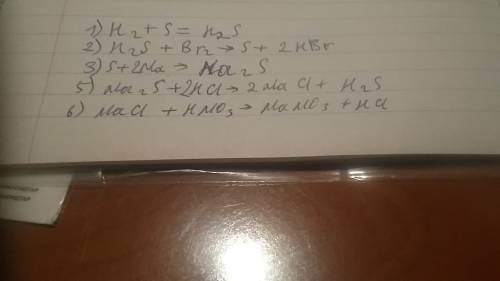 1) H₂ + S = H₂S
2) H₂S + Br₂ → S + 2HBr
3) S + 2Na → Na₂S
5) Na₂S + 2HCl → 2NaCl + H₂S
6) NaCl + HNO₃ → NaNO₃ + HCl